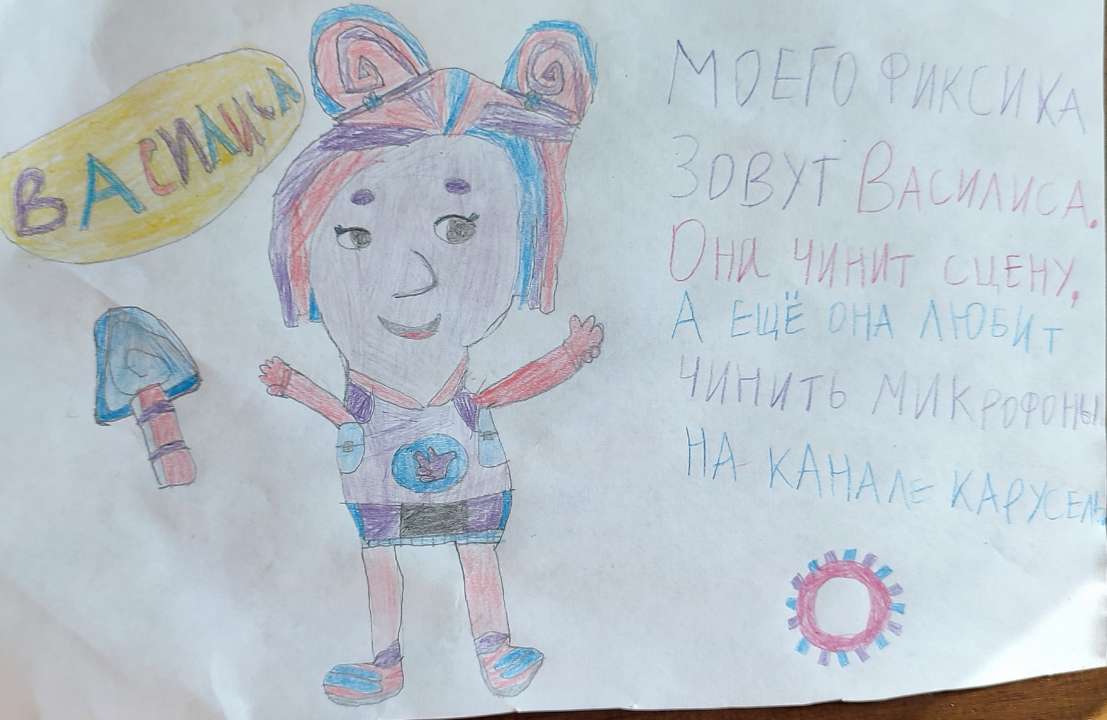 ВАСИЛИСА
МОЕГО ФИКСИКА
ЗОВУТ ВАСИЛИСА.
ОНА ЧИНИТ СЦЕНУ,
А ЕЩЁ ОНА ЛЮБИТ
ЧИНИТЬ МИКРОФОНЫ
НА КАНАЛЕ КАРУСЕЛЬ